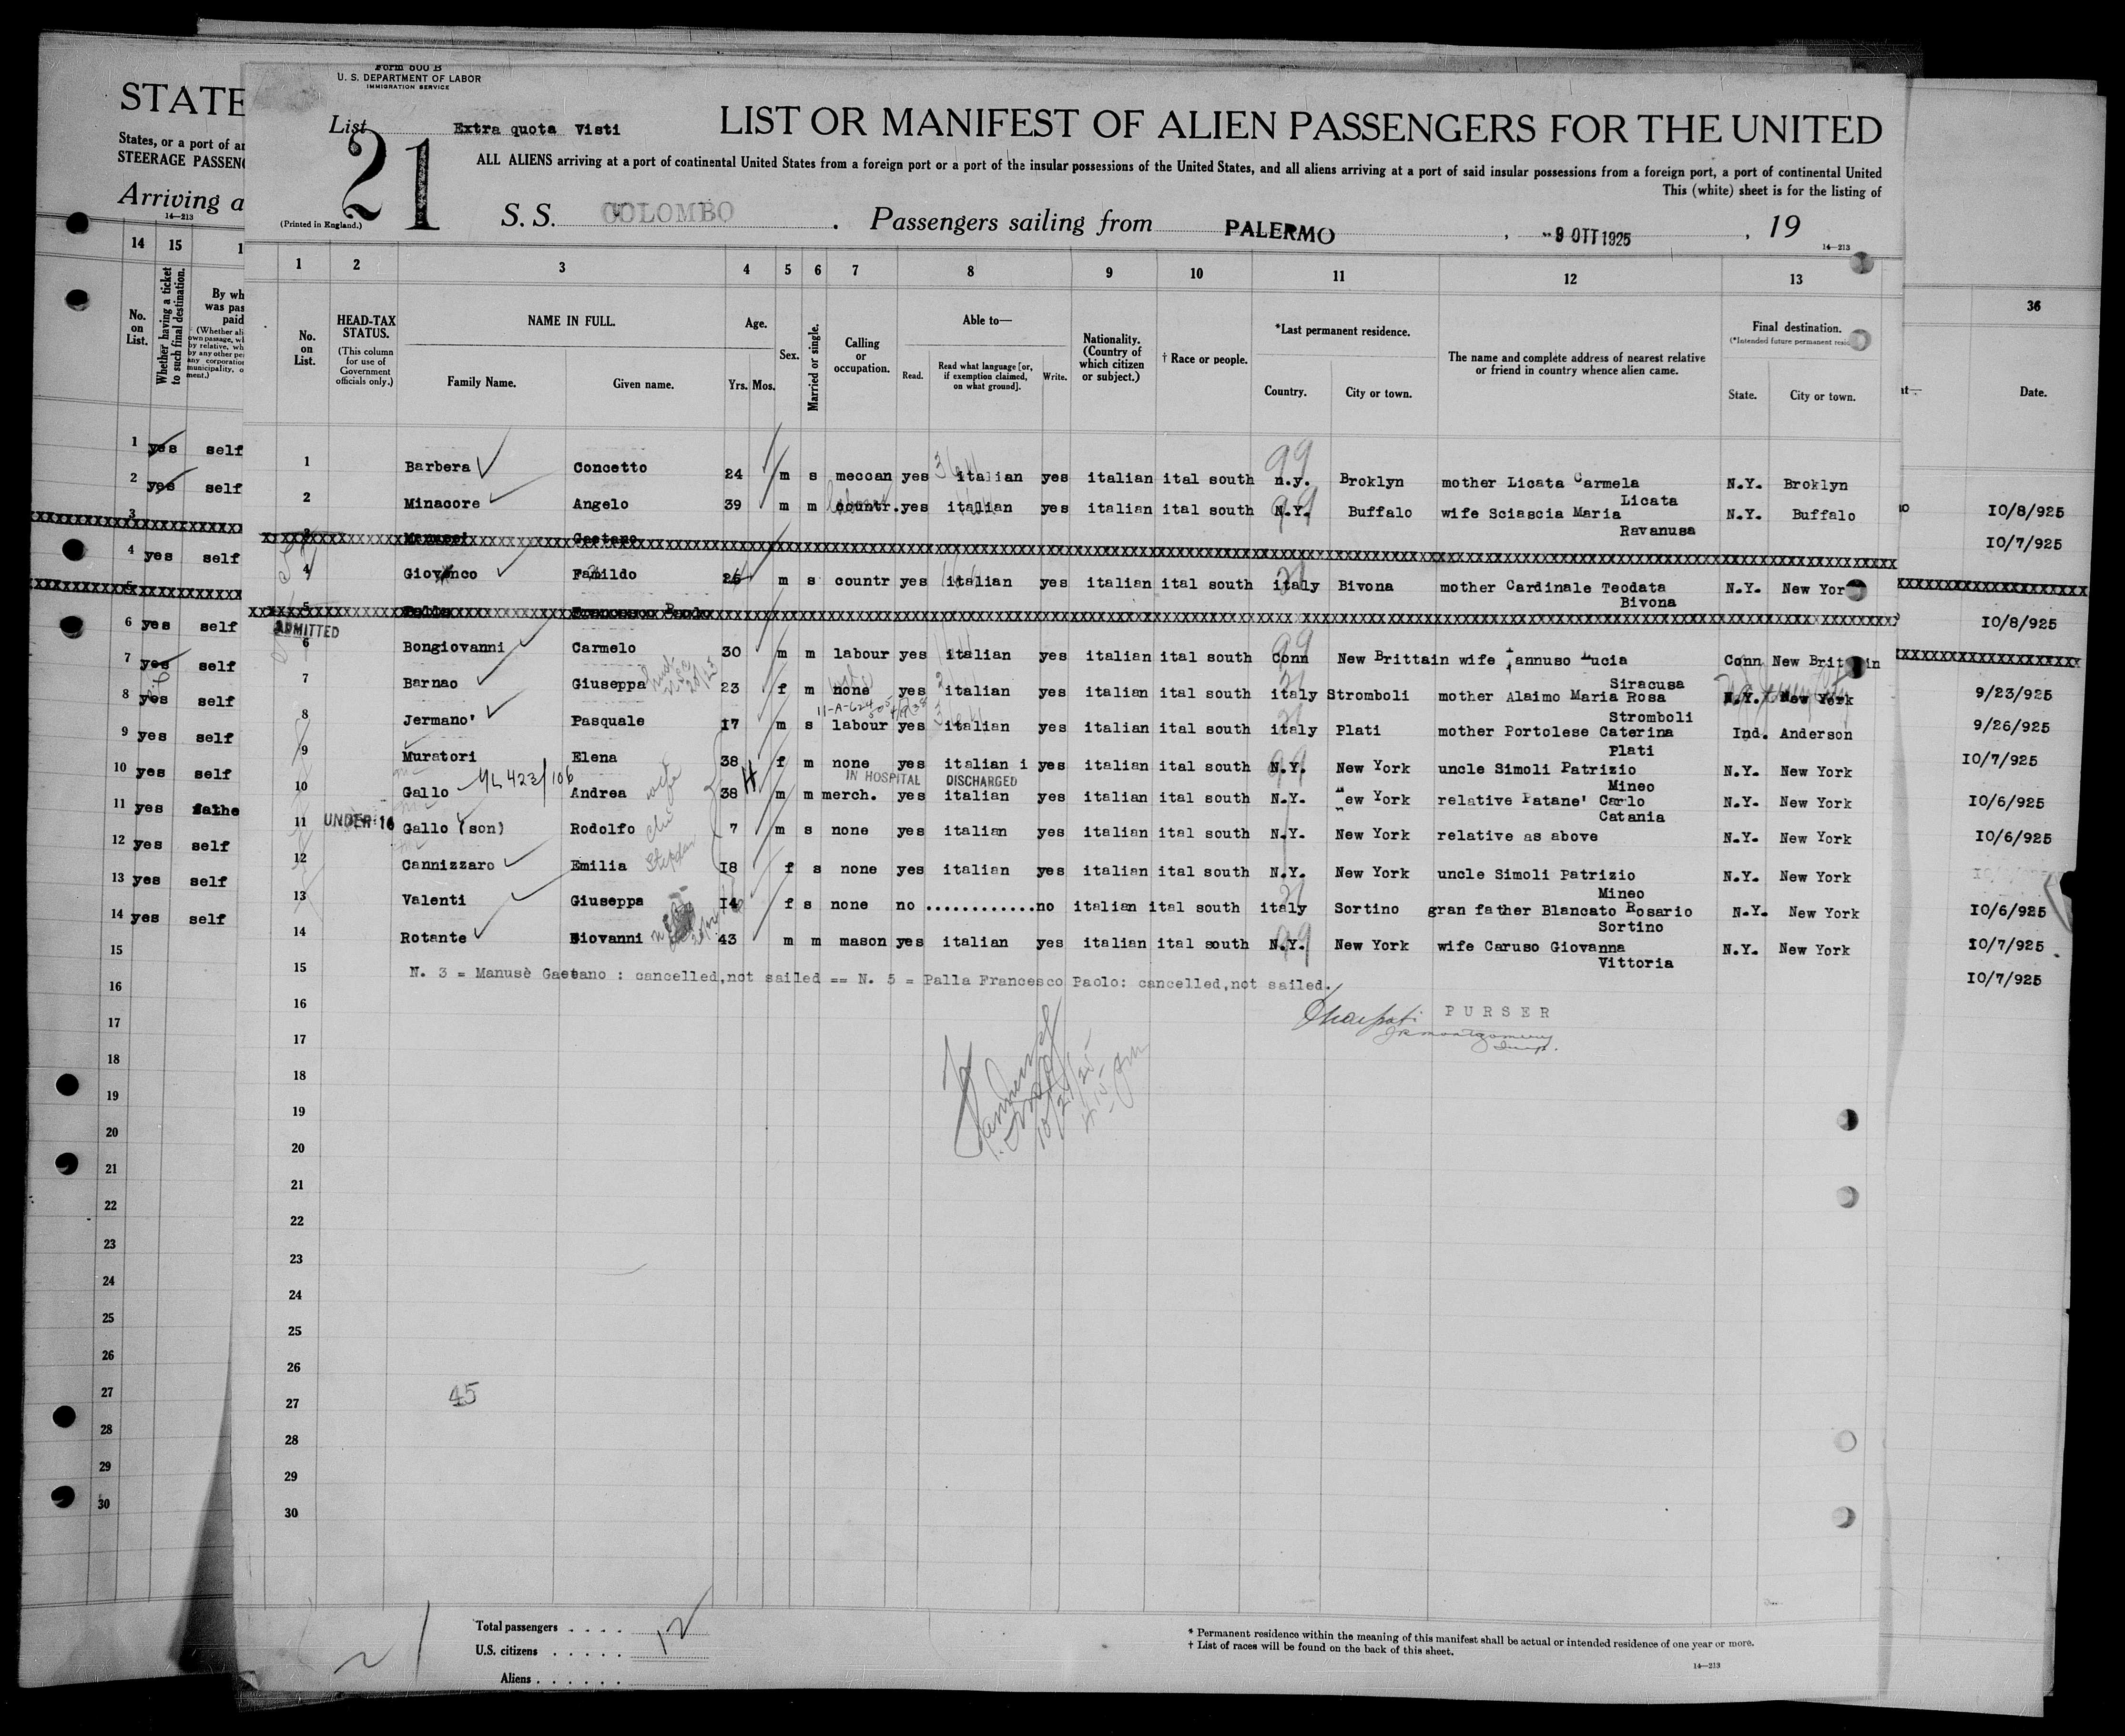 Form 600 B
U. S. DEPARTMENT OF LABOR
IMMIGRATION SERVICE
List Extra quota Visti
21
LIST OR MANIFEST OF ALIEN PASSENGERS FOR THE UNITED
ALL ALIENS arriving at a port of continental United States from a foreign port or a port of the insular possessions of the United States, and all aliens arriving at a port of said insular possessions from a foreign port, a port of continental United
This (white) sheet is for the listing of
(Printed in England.)
S. S. COLOMBO . Passengers sailing from PALERMO , -9 OTT 1925 , 19
14—213
1 2 3 4 5 6 7 8 9 10 11 12 13
No. on List.
HEAD-TAX STATUS.
(This column for use of Government officials only.)
NAME IN FULL.
Family Name. Given name.
Age.
Yrs. Mos.
Sex.
Married or single.
Calling or occupation.
Able to—
Read. Read what language [or, if exemption claimed, on what ground]. Write.
Nationality. (Country of which citizen or subject.)
† Race or people.
*Last permanent residence.
Country. City or town.
The name and complete address of nearest relative or friend in country whence alien came.
Final destination.
State. City or town.
1 Barbera Concetto 24 m s meccan yes italian yes italian ital south n.y. Broklyn mother Licata Carmela N.Y. Broklyn
Licata
2 Minacore Angelo 39 m m countr. yes italian yes italian ital south N.Y. Buffalo wife Sciascia Maria N.Y. Buffalo
Ravanusa
3 Gaetano
4 26 m s countr yes italian yes italian ital south italy Bivona mother Cardinale Teodata N.Y. New Yor
Bivona
5 Francesco Paolo
ADMITTED
6 Bongiovanni Carmelo 30 m m labour yes italian yes italian ital south Conn New Brittain wife Iannuso Lucia Conn New Brittain
Siracusa
7 Barnao Giuseppa 23 f m none yes italian yes italian ital south italy Stromboli mother Alaimo Maria Rosa N.Y. New York
Stromboli
11-A-624
8 Jermano' Pasquale 17 m s labour yes italian yes italian ital south italy Plati mother Portolese Caterina Ind. Anderson
Plati
9 Muratori Elena 38 f m none yes italian i yes italian ital south N.Y. New York uncle Simoli Patrizio N.Y. New York
Mineo
IN HOSPITAL DISCHARGED
10 Gallo 423/106 Andrea 38 m m merch. yes italian yes italian ital south N.Y. New York relative Patane' Carlo N.Y. New York
Catania
11 UNDER 16 Gallo (son) Rodolfo 7 m s none yes italian yes italian ital south N.Y. New York relative as above N.Y. New York
12 Cannizzaro Emilia 18 f s none yes italian yes italian ital south N.Y. New York uncle Simoli Patrizio N.Y. New York
Mineo
13 Valenti Giuseppa 14 f s none no ............no italian ital south italy Sortino gran father Blancato Rosario N.Y. New York
Sortino
14 Rotante Giovanni 43 m m mason yes italian yes italian ital south N.Y. New York wife Caruso Giovanna N.Y. New York
Vittoria
15 N. 3 = Manusè Gaetano : cancelled,not sailed == N. 5 = Palla Francesco Paolo: cancelled,not sailed.
16
PURSER
17
18
10/21/25
19
20
21
22
23
24
25
26
27
45
28
29
30
Total passengers . . . . 12
U.S. citizens . . . . .
Aliens . . . . . .
21
* Permanent residence within the meaning of this manifest shall be actual or intended residence of one year or more.
† List of races will be found on the back of this sheet.
14—213
STATE
States, or a port of
STEERAGE PASSEN
Arriving a
14—213
14 15
No. on List.
Whether having a ticket to such final destination.
By wh
was pas
paid
1 yes self
2 yes self
3
4 yes self
5
6 yes self
7 yes self
8 yes self
9 yes self
10 yes self
11 yes fathe
12 yes self
13 yes self
14 yes self
15
16
17
18
19
20
21
22
23
24
25
26
27
28
29
30
36
Date.
10/8/925
10/7/925
10/8/925
9/23/925
9/26/925
10/7/925
10/6/925
10/6/925
10/6/925
10/7/925
10/7/925